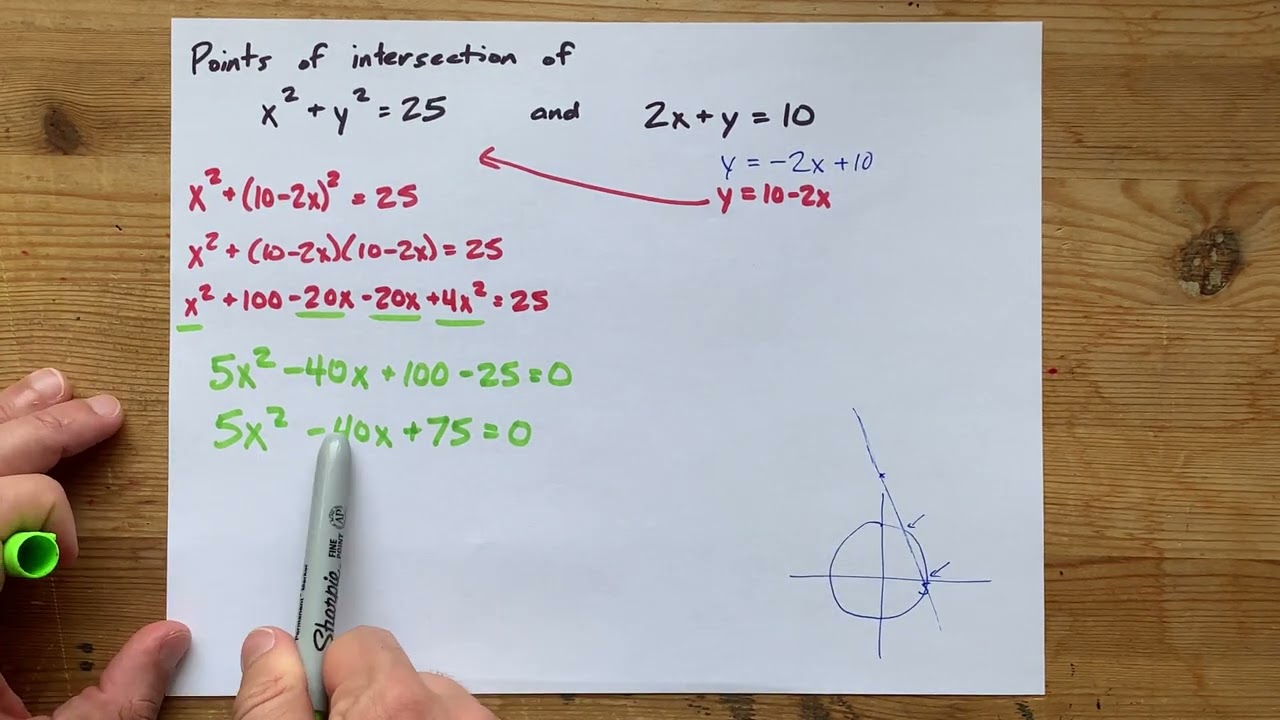 Points of intersection of
x² + y² = 25 and 2x + y = 10
y = -2x + 10
y = 10 - 2x
x² + (10 - 2x)² = 25
x² + (10 - 2x)(10 - 2x) = 25
x² + 100 - 20x - 20x + 4x² = 25
5x² - 40x + 100 - 25 = 0
5x² - 40x + 75 = 0
Sharpie
FINE POINT
Permanent Marker
AP